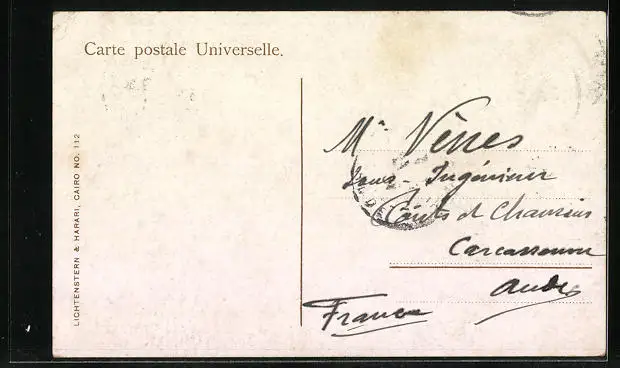 Carte postale Universelle.
LICHTENSTERN & HARARI, CAIRO NO. 112
Mr Vènes
Sous-Ingénieur
Ponts et Chaussées
Carcassonne
Aude
France